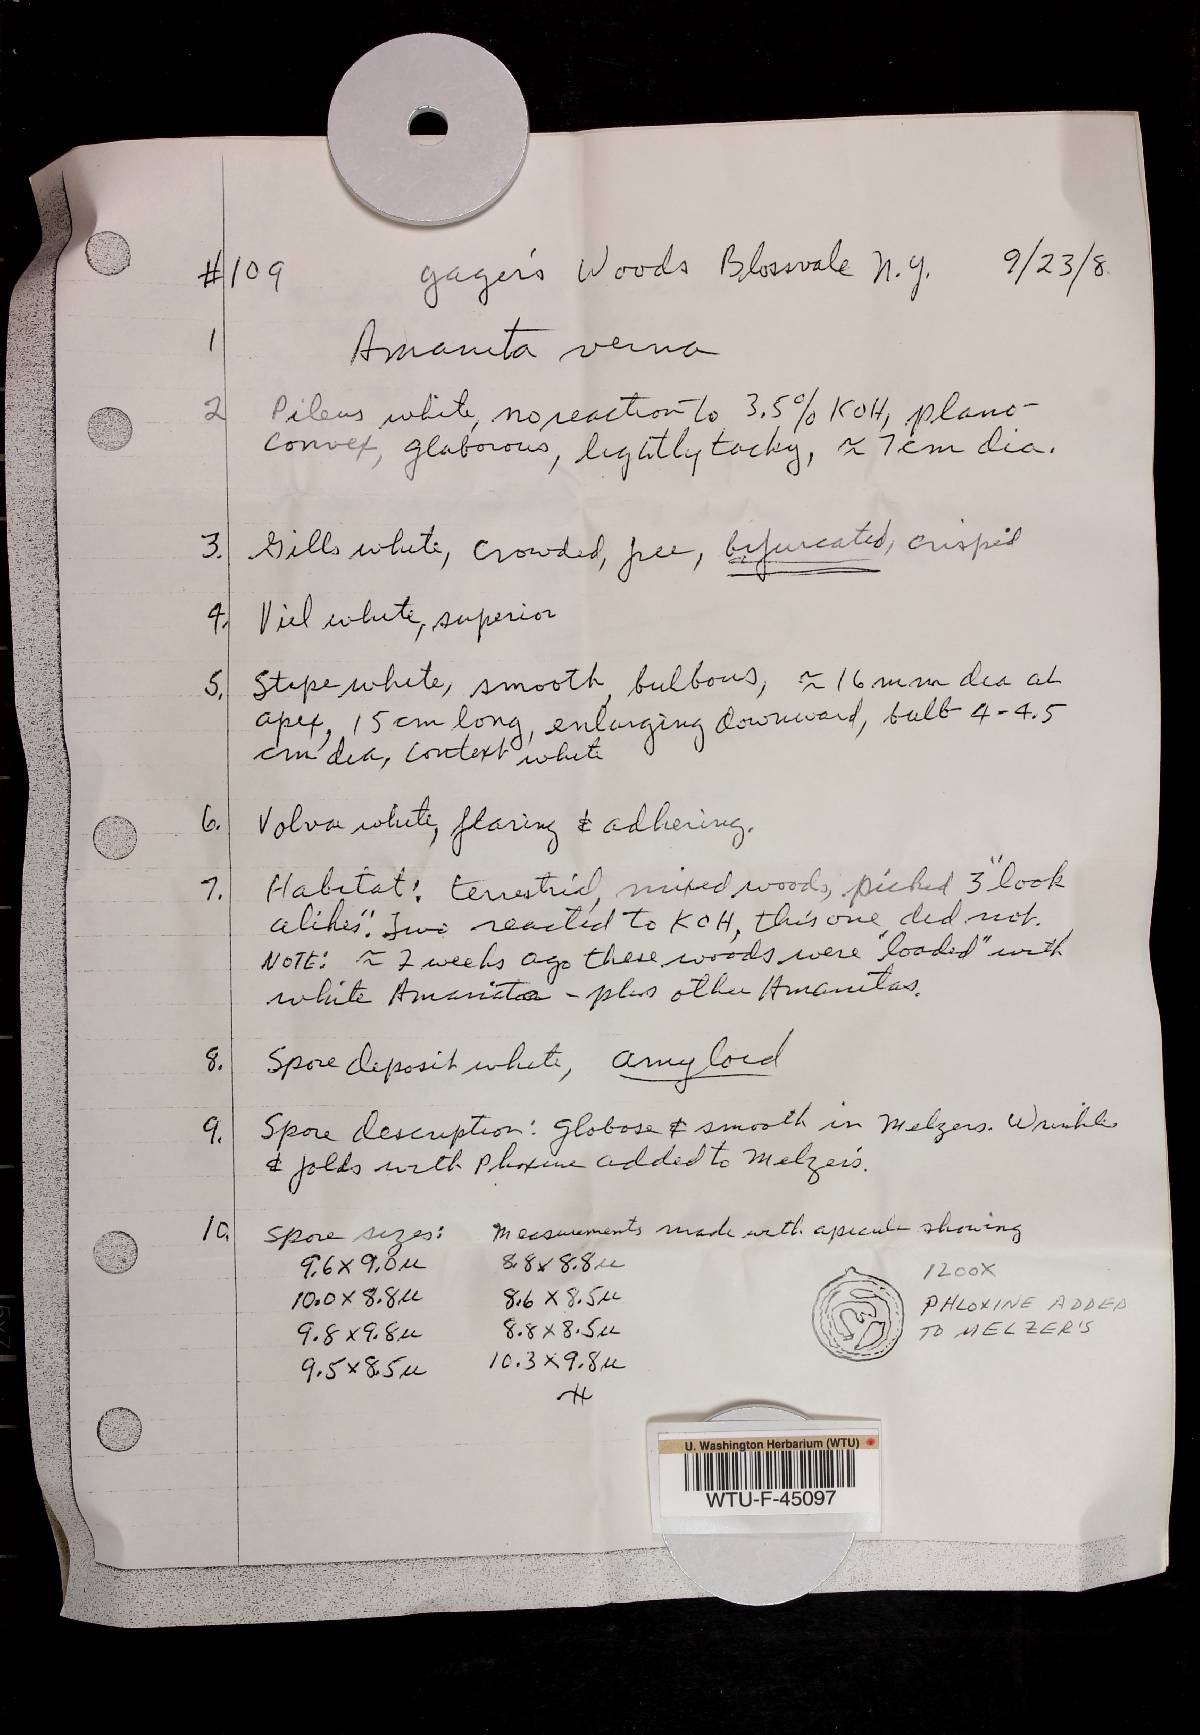 #109 Gager's Woods Blossvale N.Y. 9/23/8
1 Amanita verna
2 Pileus white, no reaction to 3.5% KOH, plano-
convex, glaborous, lightly tacky, ≈ 7cm dia.
3. Gills white, crowded, free, bifurcated, crisped
4. Viel white, superior
5. Stipe white, smooth, bulbous, ≈ 16 mm dia at
apex, 15 cm long, enlarging downward, bulb 4-4.5
cm dia, context white
6. Volva white, flaring & adhering.
7. Habitat: terrestrial, mixed woods, picked 3 "look
alikes". Two reacted to KOH, this one did not.
NOTE: ≈ 2 weeks ago these woods were "loaded" with
white Amanita - plus other Amanitas.
8. Spore deposit white, amyloid
9. Spore description: globose & smooth in Melzers. Wrinkles
& folds with Phloxine added to Melzer's.
10. Spore sizes: Measurements made with apicule showing
9.6 x 9.0 µ 8.8 x 8.8 µ
10.0 x 8.8 µ 8.6 x 8.5 µ
9.8 x 9.8 µ 8.8 x 8.5 µ
9.5 x 8.5 µ 10.3 x 9.8 µ
1200X
PHLOXINE ADDED
TO MELZER'S
U. Washington Herbarium (WTU)
WTU-F-45097